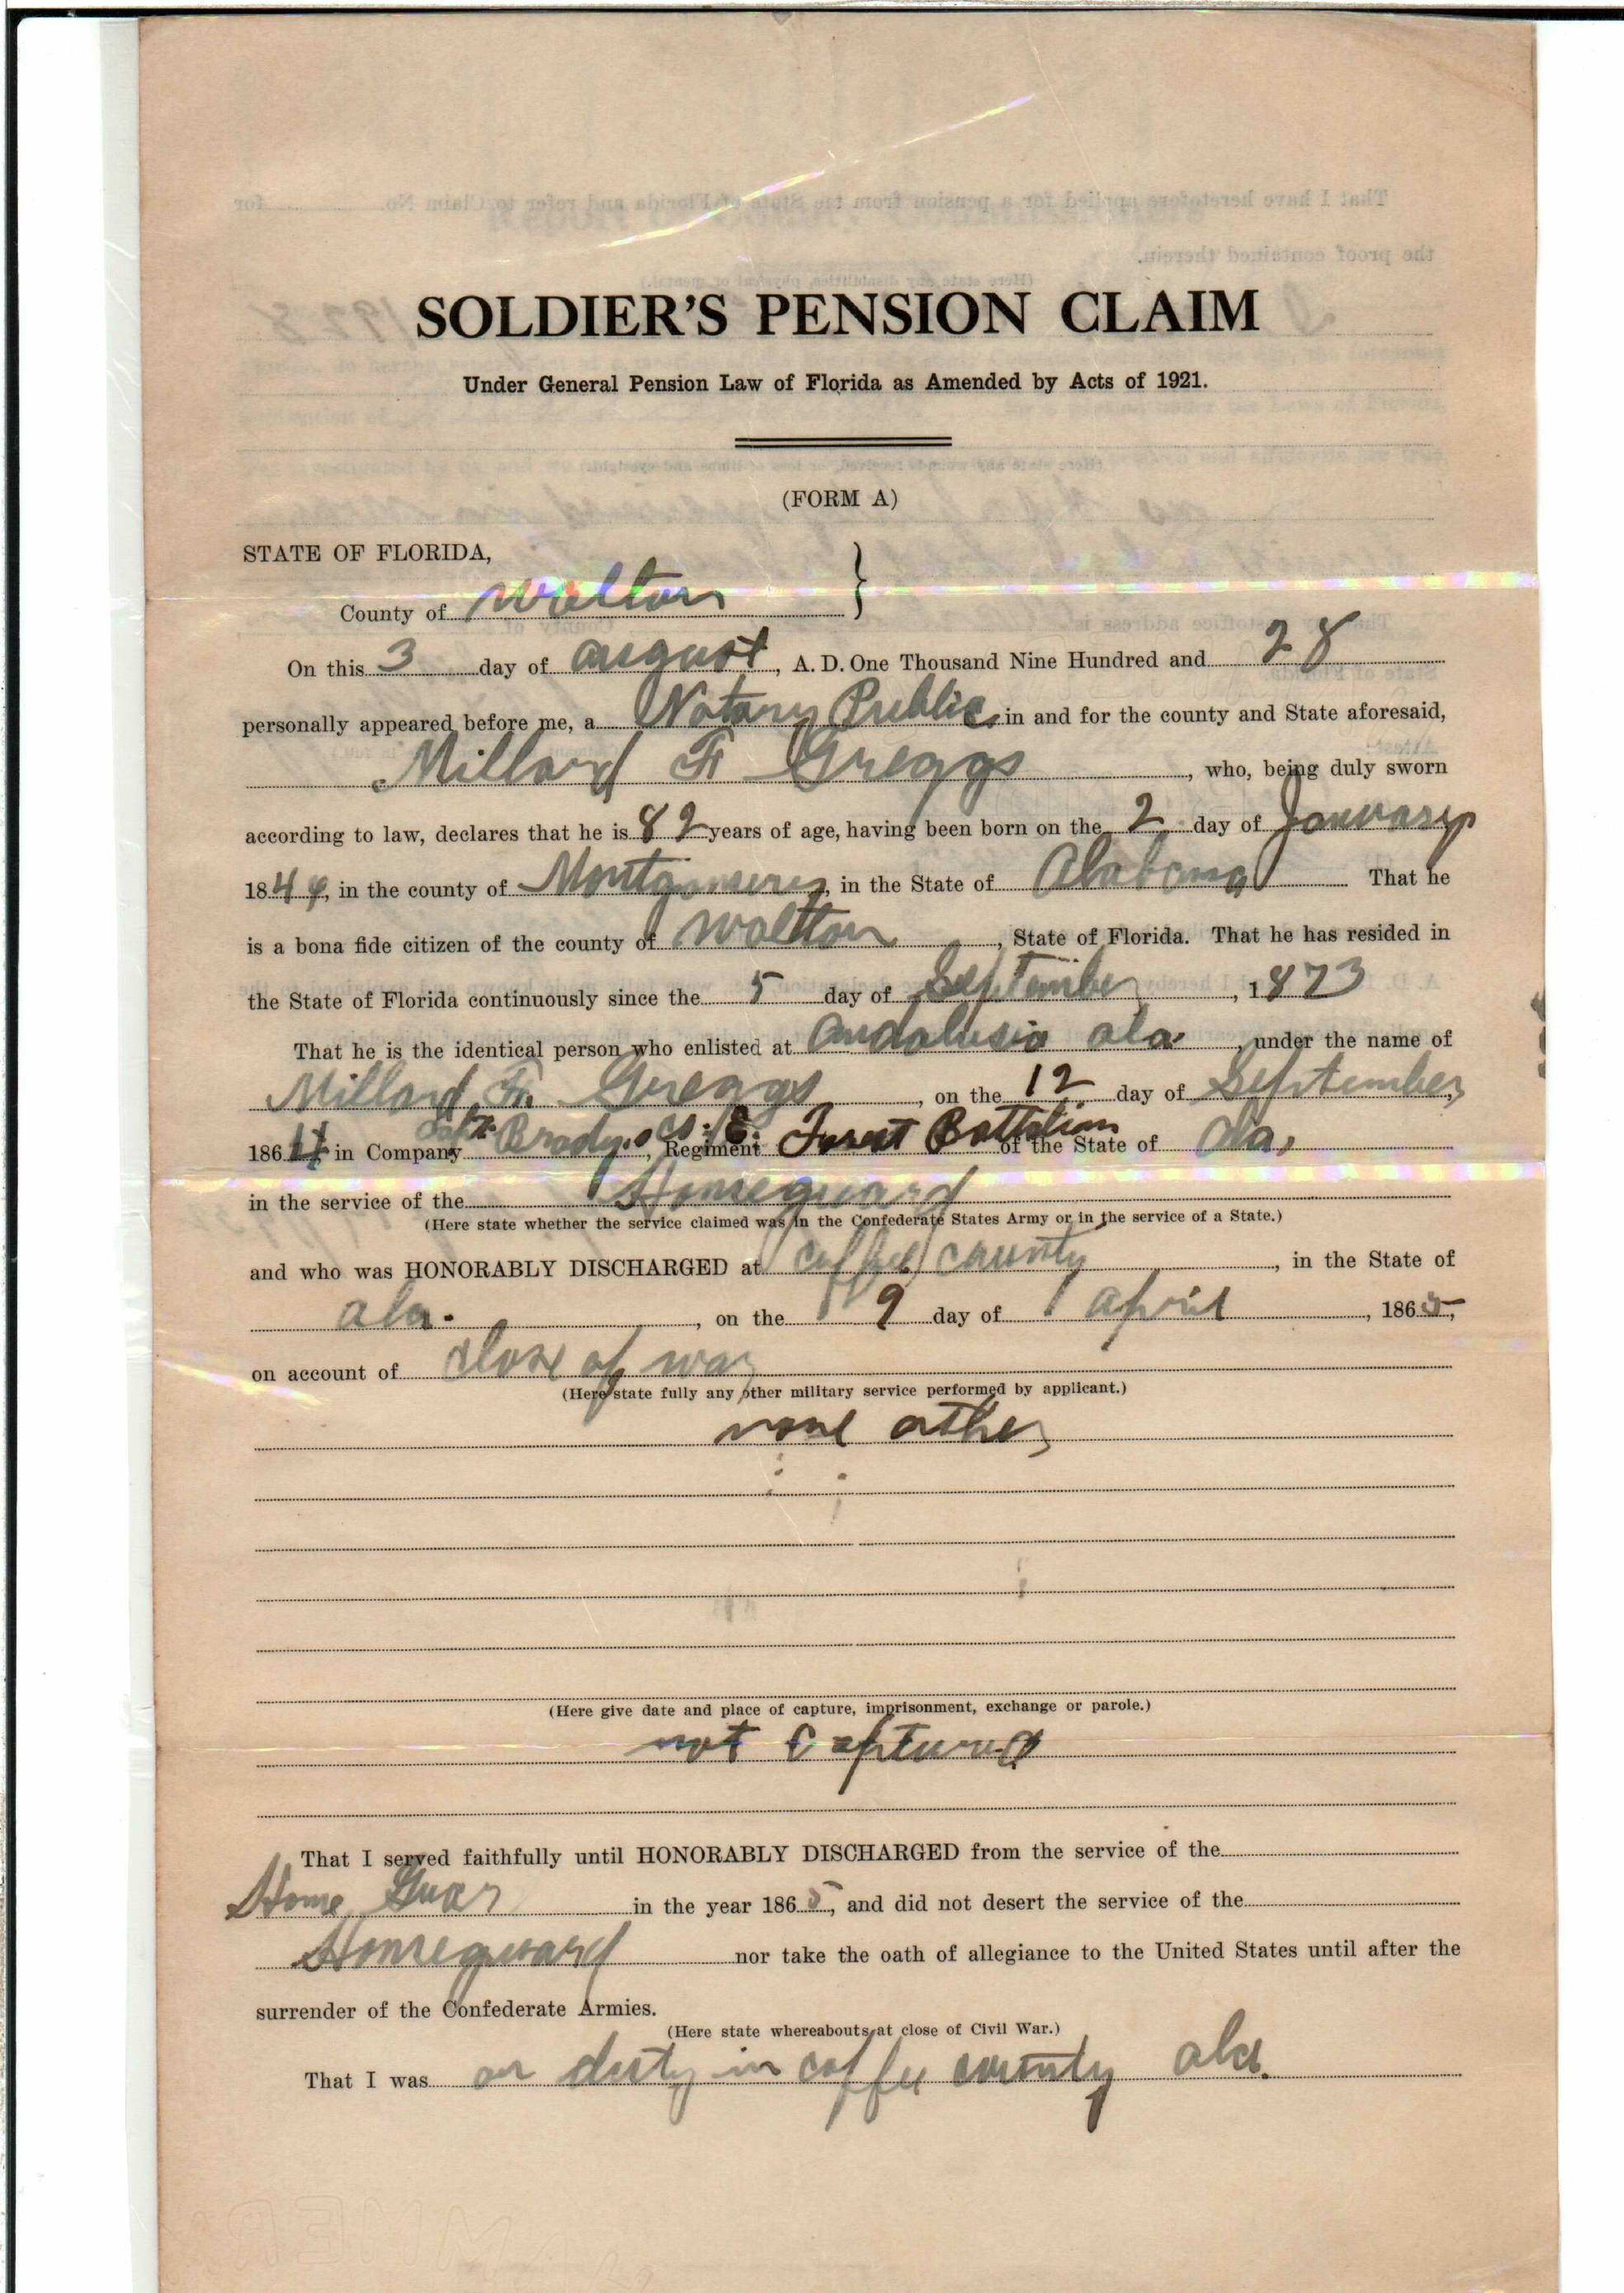 SOLDIER'S PENSION CLAIM
Under General Pension Law of Florida as Amended by Acts of 1921.
(FORM A)
STATE OF FLORIDA,
County of Walton
On this 3 day of august, A. D. One Thousand Nine Hundred and 28
personally appeared before me, a Notary Public in and for the county and State aforesaid,
Millard F. Greggs, who, being duly sworn
according to law, declares that he is 82 years of age, having been born on the 2 day of January
184, in the county of Montgomery, in the State of Alabama That he
is a bona fide citizen of the county of Walton, State of Florida. That he has resided in
the State of Florida continuously since the 5 day of September, 1873
That he is the identical person who enlisted at Andalusia ala., under the name of
Millard F. Greggs, on the 12 day of September,
186 in Company Capt. Brady's Co. E., Regiment Furst Battalion of the State of Ala,
in the service of the Homeguard
(Here state whether the service claimed was in the Confederate States Army or in the service of a State.)
and who was HONORABLY DISCHARGED at coffee county, in the State of
ala., on the 9 day of april, 1865,
on account of close of war
(Here state fully any other military service performed by applicant.)
none other
(Here give date and place of capture, imprisonment, exchange or parole.)
not captured
That I served faithfully until HONORABLY DISCHARGED from the service of the
Home Guar in the year 1865, and did not desert the service of the
Homeguard nor take the oath of allegiance to the United States until after the
surrender of the Confederate Armies.
(Here state whereabouts at close of Civil War.)
That I was on duty in coffee county ala.